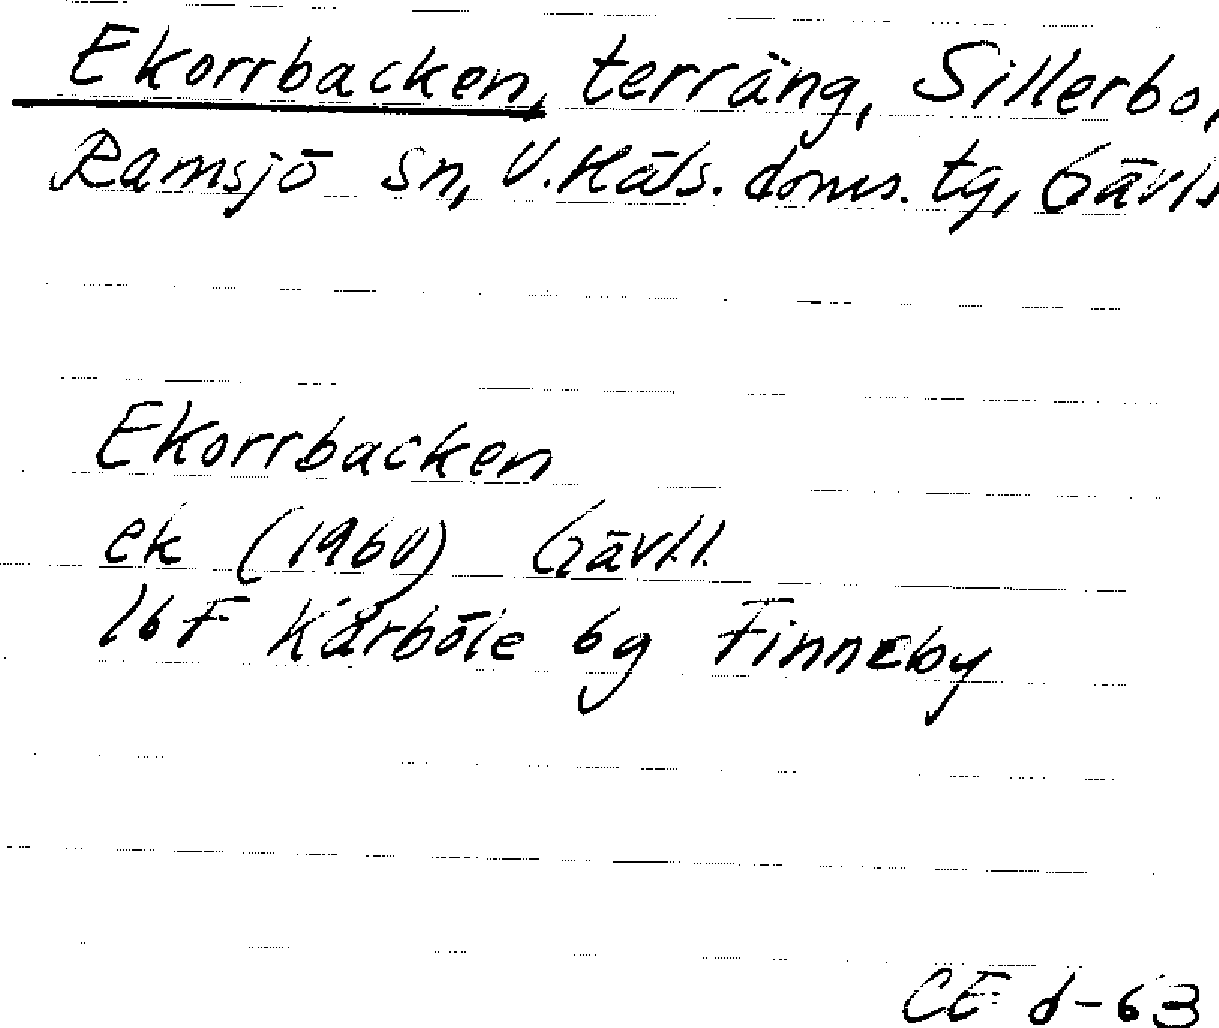 Ekorrbacken, terräng, Sillerbo,
Ramsjö sn, V. Häls. doms. tg, Gävls
Ekorrbacken
ek (1960) Gävl.l.
16F Kårböle 6g Finneby
CE d-63